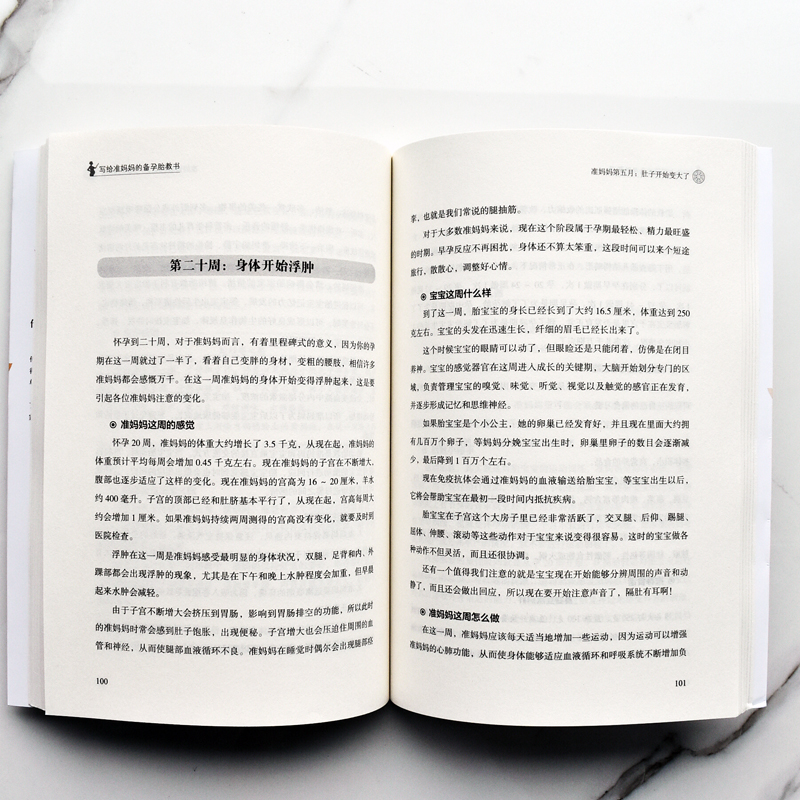 写给准妈妈的备孕胎教书
第二十周：身体开始浮肿
怀孕到二十周，对于准妈妈而言，有着里程碑式的意义，因为你的孕
期在这一周就过了一半了，看着自己变胖的身材，变粗的腰肢，相信许多
准妈妈都会感慨万千。在这一周准妈妈的身体开始变得浮肿起来，这是要
引起各位准妈妈注意的变化。
准妈妈这周的感觉
怀孕 20 周，准妈妈的体重大约增长了 3.5 千克，从现在起，准妈妈的
体重预计平均每周会增加 0.45 千克左右。现在准妈妈的子宫在不断增大，
腹部也逐步适应了这样的变化。现在准妈妈的宫高为 16 ~ 20 厘米，羊水
约 400 毫升。子宫的顶部已经和肚脐基本平行了，从现在起，宫高每周大
约会增加 1 厘米。如果准妈妈持续两周测得的宫高没有变化，就要及时到
医院检查。
浮肿在这一周是准妈妈感受最明显的身体状况，双腿，足背和内、外
踝部都会出现浮肿的现象，尤其是在下午和晚上水肿程度会加重，但早晨
起来水肿会减轻。
由于子宫不断增大会挤压到胃肠，影响到胃肠排空的功能，所以此时
的准妈妈时常会感到肚子饱胀，出现便秘。子宫增大也会压迫住周围的血
管和神经，从而使腿部血液循环不良。准妈妈在睡觉时偶尔会出现腿部痉
100
准妈妈第五月：肚子开始变大了
挛，也就是我们常说的腿抽筋。
对于大多数准妈妈来说，现在这个阶段属于孕期最轻松、精力最旺盛
的时期。早孕反应不再困扰，身体还不算太笨重，这段时间可以来个短途
旅行，散散心，调整好心情。
宝宝这周什么样
到了这一周，胎宝宝的身长已经长到了大约 16.5 厘米，体重达到 250
克左右。宝宝的头发在迅速生长，纤细的眉毛已经长出来了。
这个时候宝宝的眼睛可以动了，但眼睑还是只能闭着，仿佛是在闭目
养神。宝宝的感觉器官在这周进入成长的关键期，大脑开始划分专门的区
域，负责管理宝宝的嗅觉、味觉、听觉、视觉以及触觉的感官正在发育，
并逐步形成记忆和思维神经。
如果胎宝宝是个小公主，她的卵巢已经发育好，并且现在里面大约拥
有几百万个卵子，等妈妈分娩宝宝出生时，卵巢里卵子的数目会逐渐减
少，最后降到 1 百万个左右。
现在免疫抗体会通过准妈妈的血液输送给胎宝宝，等宝宝出生以后，
它将会帮助宝宝在最初一段时间内抵抗疾病。
胎宝宝在子宫这个大房子里已经非常活跃了，交叉腿、后仰、踢腿、
屈体、伸腰、滚动等这些动作对于宝宝来说变得很容易。这时的宝宝做各
种动作不但灵活，而且还很协调。
还有一个值得我们注意的就是宝宝现在开始能够分辨周围的声音和动
静了，而且还会做出回应，所以现在要开始注意声音了，隔肚有耳啊！
准妈妈这周怎么做
在这一周，准妈妈应该每天适当地增加一些运动，因为运动可以增强
准妈妈的心肺功能，从而使身体能够适应血液循环和呼吸系统不断增加负
101